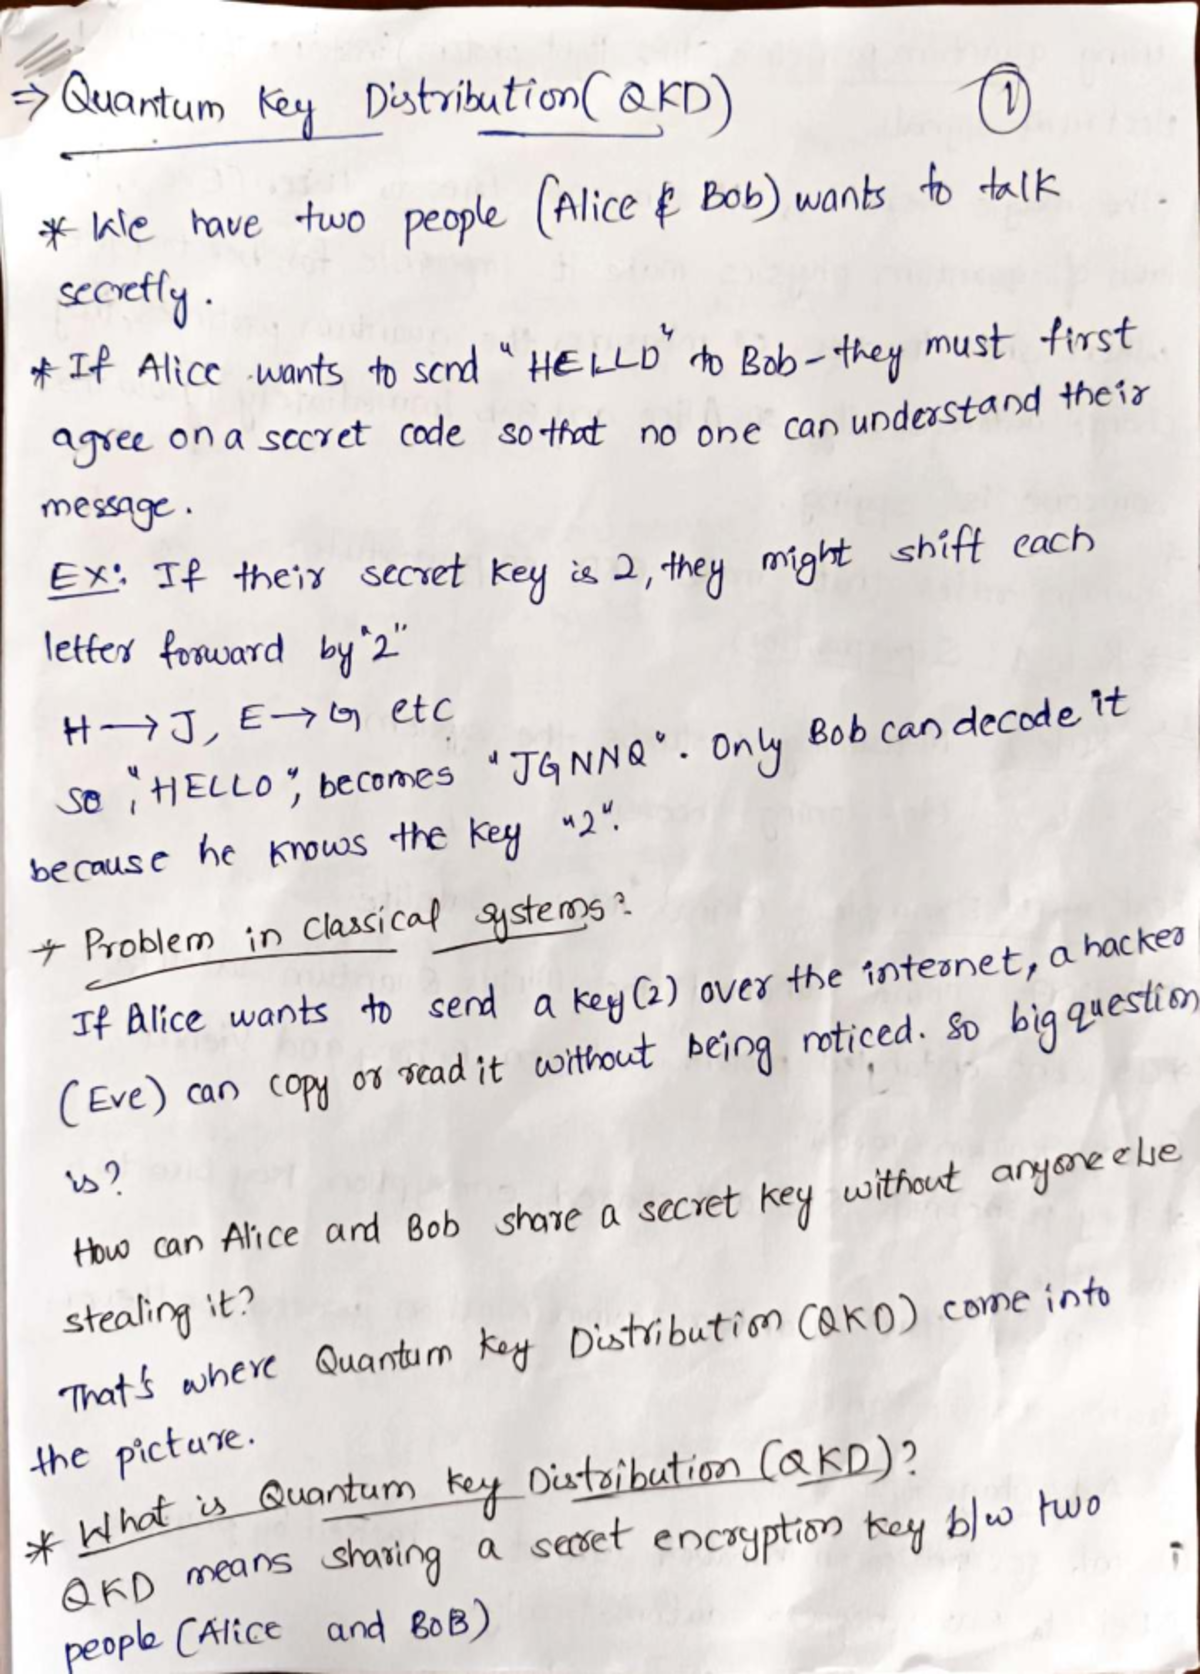 ⇒ Quantum Key Distribution (QKD) ①
* We have two people (Alice & Bob) wants to talk
secretly.
* If Alice wants to send "HELLO" to Bob - they must first
agree on a secret code so that no one can understand their
message.
Ex: If their secret key is 2, they might shift each
letter forward by "2"
H → J, E → G etc
so, "HELLO", becomes "JGNNQ". Only Bob can decode it
because he knows the key "2".
* Problem in classical systems?
If Alice wants to send a key (2) over the internet, a hacker
(Eve) can copy or read it without being noticed. So big question
is?
How can Alice and Bob share a secret key without anyone else
stealing it?
That's where Quantum Key Distribution (QKD) come into
the picture.
* What is Quantum Key Distribution (QKD)?
QKD means sharing a secret encryption key b/w two
people (Alice and BoB)